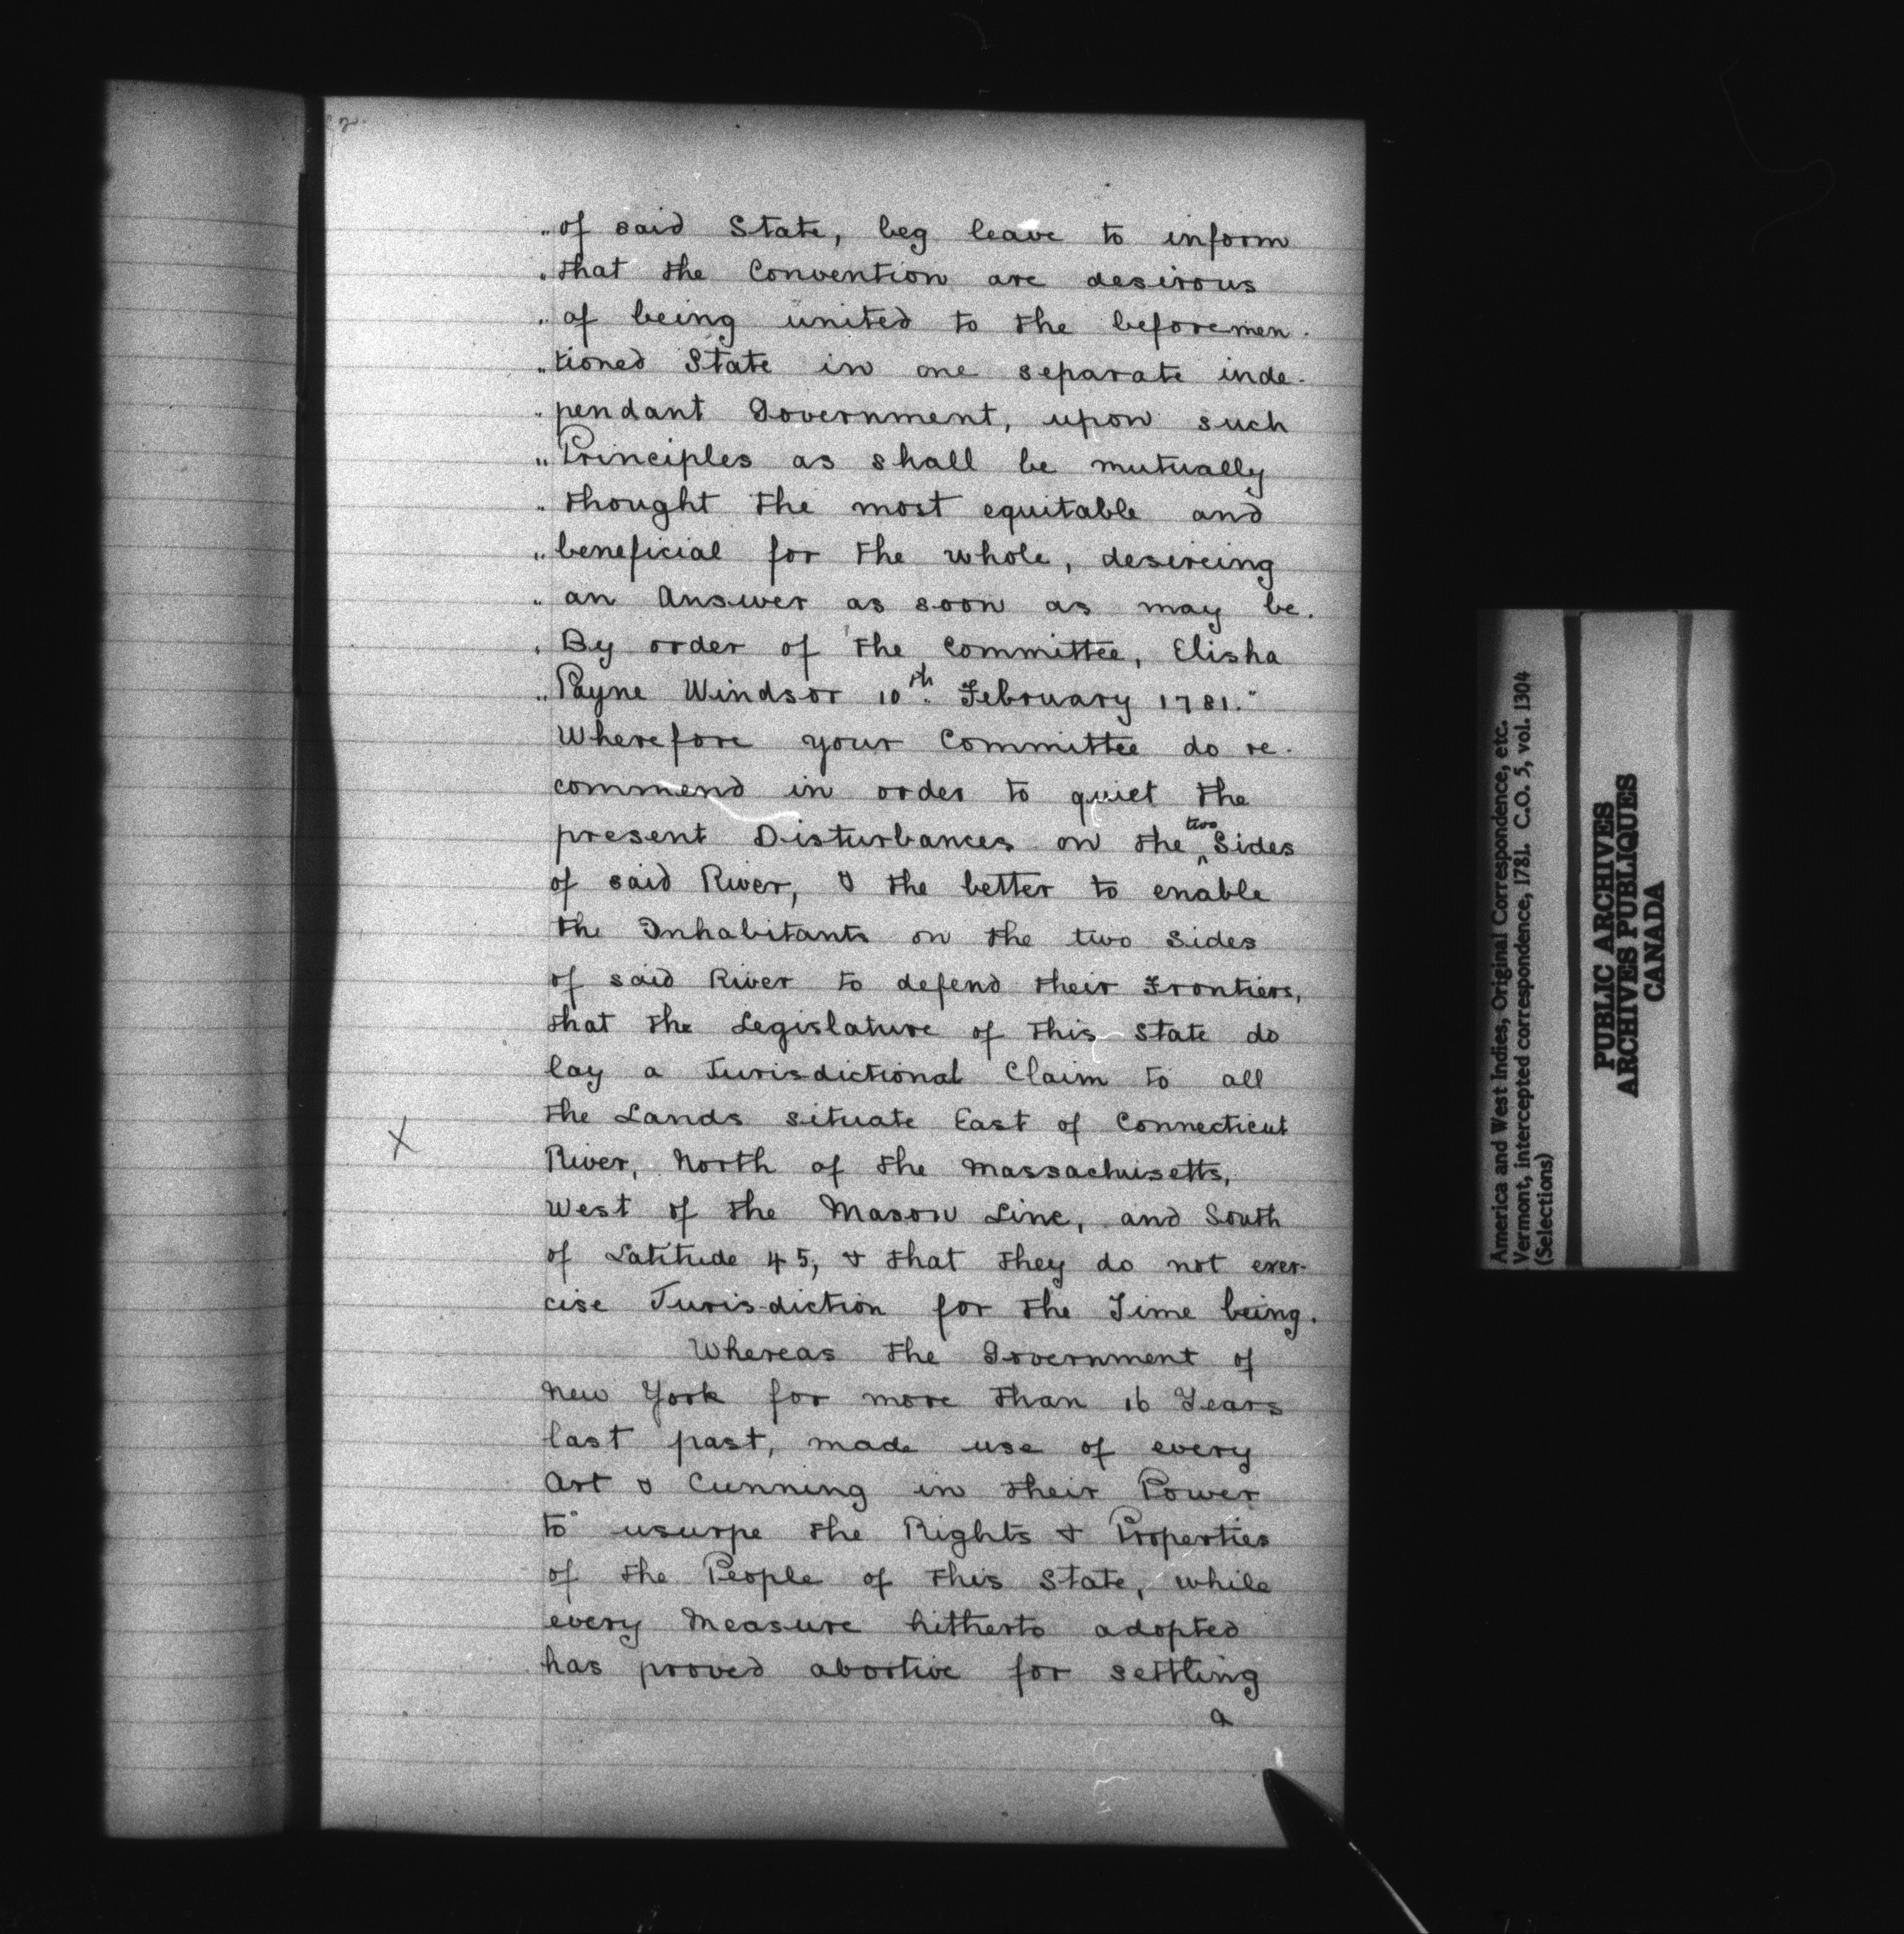 2.
„of said State, beg leave to inform
„that the Convention are desirous
„of being united to the beforemen-
„tioned State in one separate inde-
„pendant Government, upon such
„Principles as shall be mutually
„thought the most equitable and
„beneficial for the whole, desireing
„an Answer as soon as may be.
„By order of the Committee, Elisha
„Payne Windsor 10th. February 1781."
Wherefore your Committee do re-
commend in order to quiet the
present Disturbances on the two Sides
of said River, & the better to enable
the Inhabitants on the two Sides
of said River to defend their Frontiers,
that the Legislature of this State do
lay a Jurisdictional Claim to all
the Lands situate East of Connecticut
River, North of the Massachusetts,
West of the Mason Line, and South
of Latitude 45, & that they do not exer-
cise Jurisdiction for the Time being.
Whereas the Government of
New York for more than 16 Years
last past, made use of every
Art & Cunning in their Power
to usurpe the Rights & Properties
of the People of this State, while
every Measure hitherto adopted
has proved abortive for settling
a
X
America and West Indies, Original Correspondence, etc.
Vermont, intercepted correspondence, 1781. C.O. 5, vol. 1304
(Selections)
PUBLIC ARCHIVES
ARCHIVES PUBLIQUES
CANADA